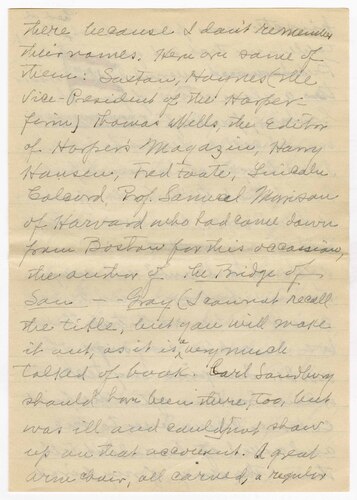 there because I don't remember
their names. Here are some of
them: Saxton, Haines (the
Vice-President of the Harper
firm) Thomas Wells, the Editor
of Harper's Magazine, Harry
Hansen, Fred Tate, Lincoln
Colcord, Prof. Samuel Morison
of Harvard who had come down
from Boston for this occasion,
the author of The Bridge of
San - - Gray (I cannot recall
the title, but you will make
it out, as it is a very much
talked of book. Carl Sandburg
should have been there, too, but
was ill and could not show
up on that account. A great
arm chair, all carved, a regular